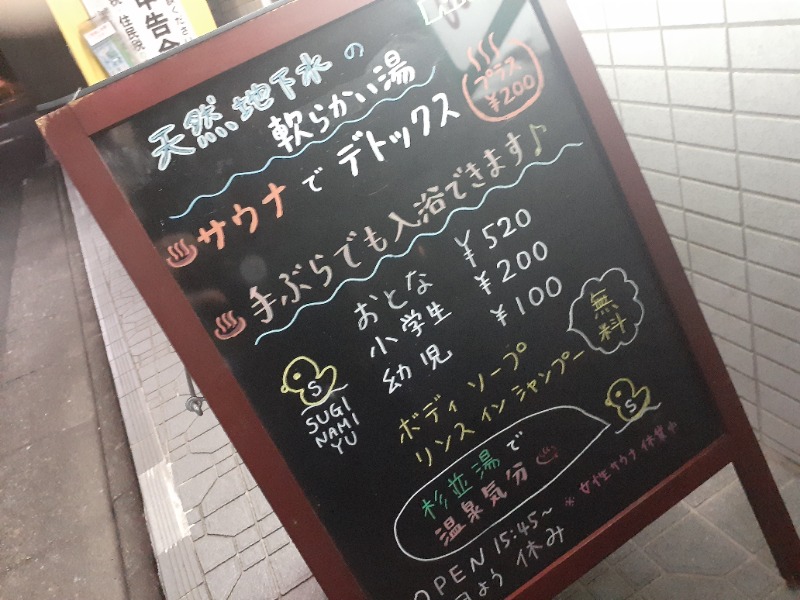 申告会
住民税
天然地下水の
軟らかい湯
プラス
¥200
サウナでデトックス
手ぶらでも入浴できます♪
おとな ¥520
小学生 ¥200
幼児 ¥100
SUGI
NAMI
YU
無料
ボディソープ
リンスインシャンプー
杉並湯で
温泉気分
※女性サウナ休業中
OPEN 15:45~
よう休み